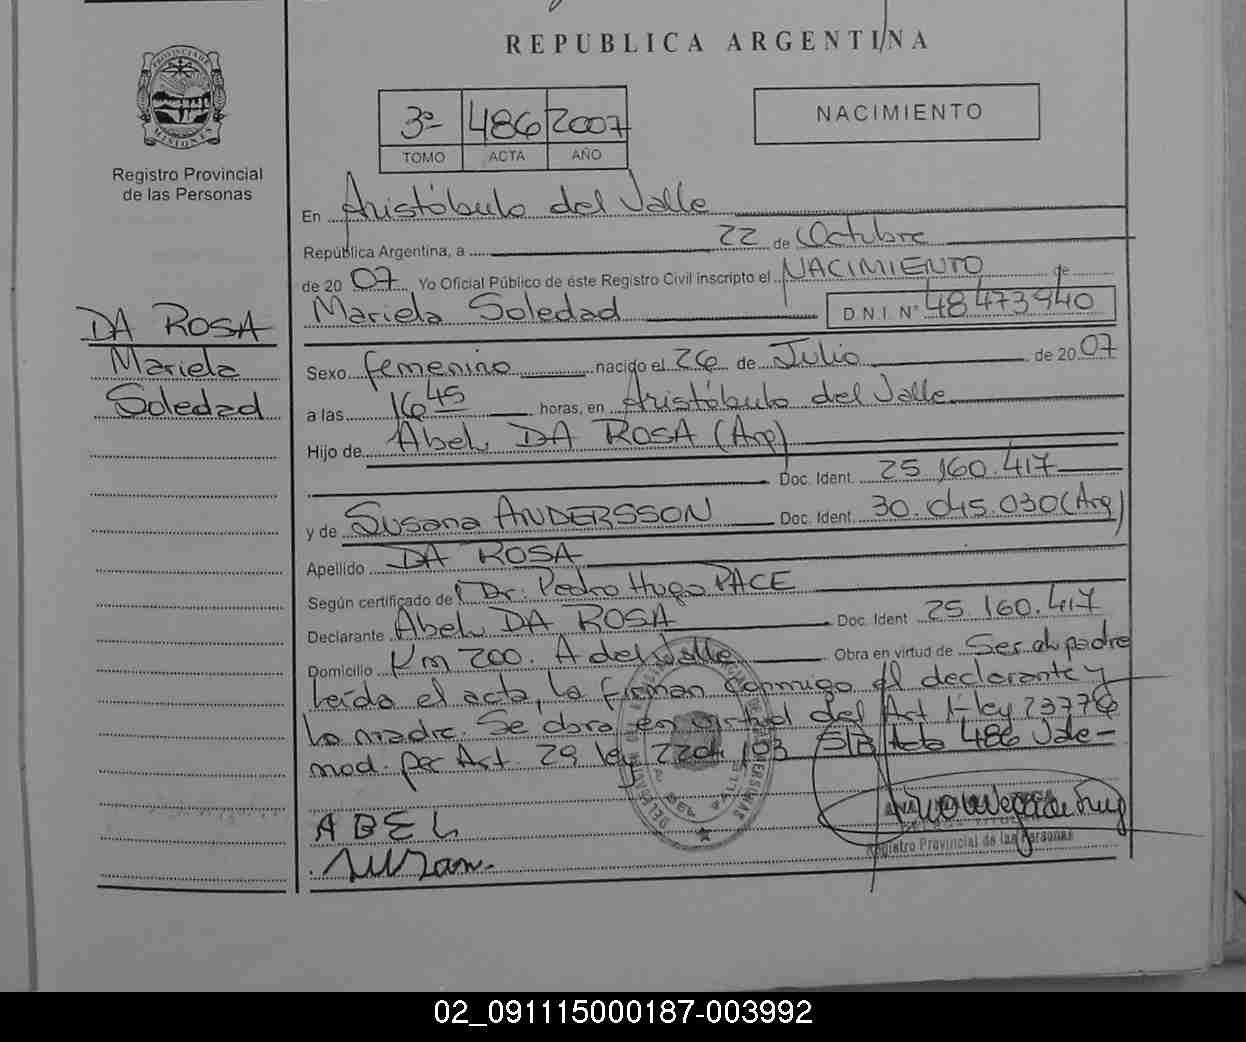 REPUBLICA ARGENTINA
PROVINCIA DE MISIONES
Registro Provincial
de las Personas
3º 486 2007
TOMO ACTA AÑO
NACIMIENTO
En Aristóbulo del Valle
República Argentina, a 22 de Octubre
de 2007 Yo Oficial Público de éste Registro Civil inscripto el NACIMIENTO de
Mariela Soledad D.N.I. Nº 48473940
DA ROSA
Mariela
Soledad
Sexo femenino nacido el 26 de Julio de 2007
a las 16 45 horas, en Aristóbulo del Valle
Hijo de Abel DA ROSA (Arg)
Doc. Ident. 25.160.417
y de Susana ANDERSSON Doc. Ident. 30.045.030 (Arg)
Apellido DA ROSA
Según certificado de Dr. Pedro Hugo PACE
Declarante Abel DA ROSA Doc. Ident 25.160.417
Domicilio Km 200. A del Valle Obra en virtud de Ser el padre
Leído el acta, la firman conmigo el declarante y
la madre. Se obra en virtud del Art 1- ley 23776
mod. por Art. 29 ley 22 Acta 486 Vale-
ABEL
Susan
Registro Provincial de las Personas
02_091115000187-003992